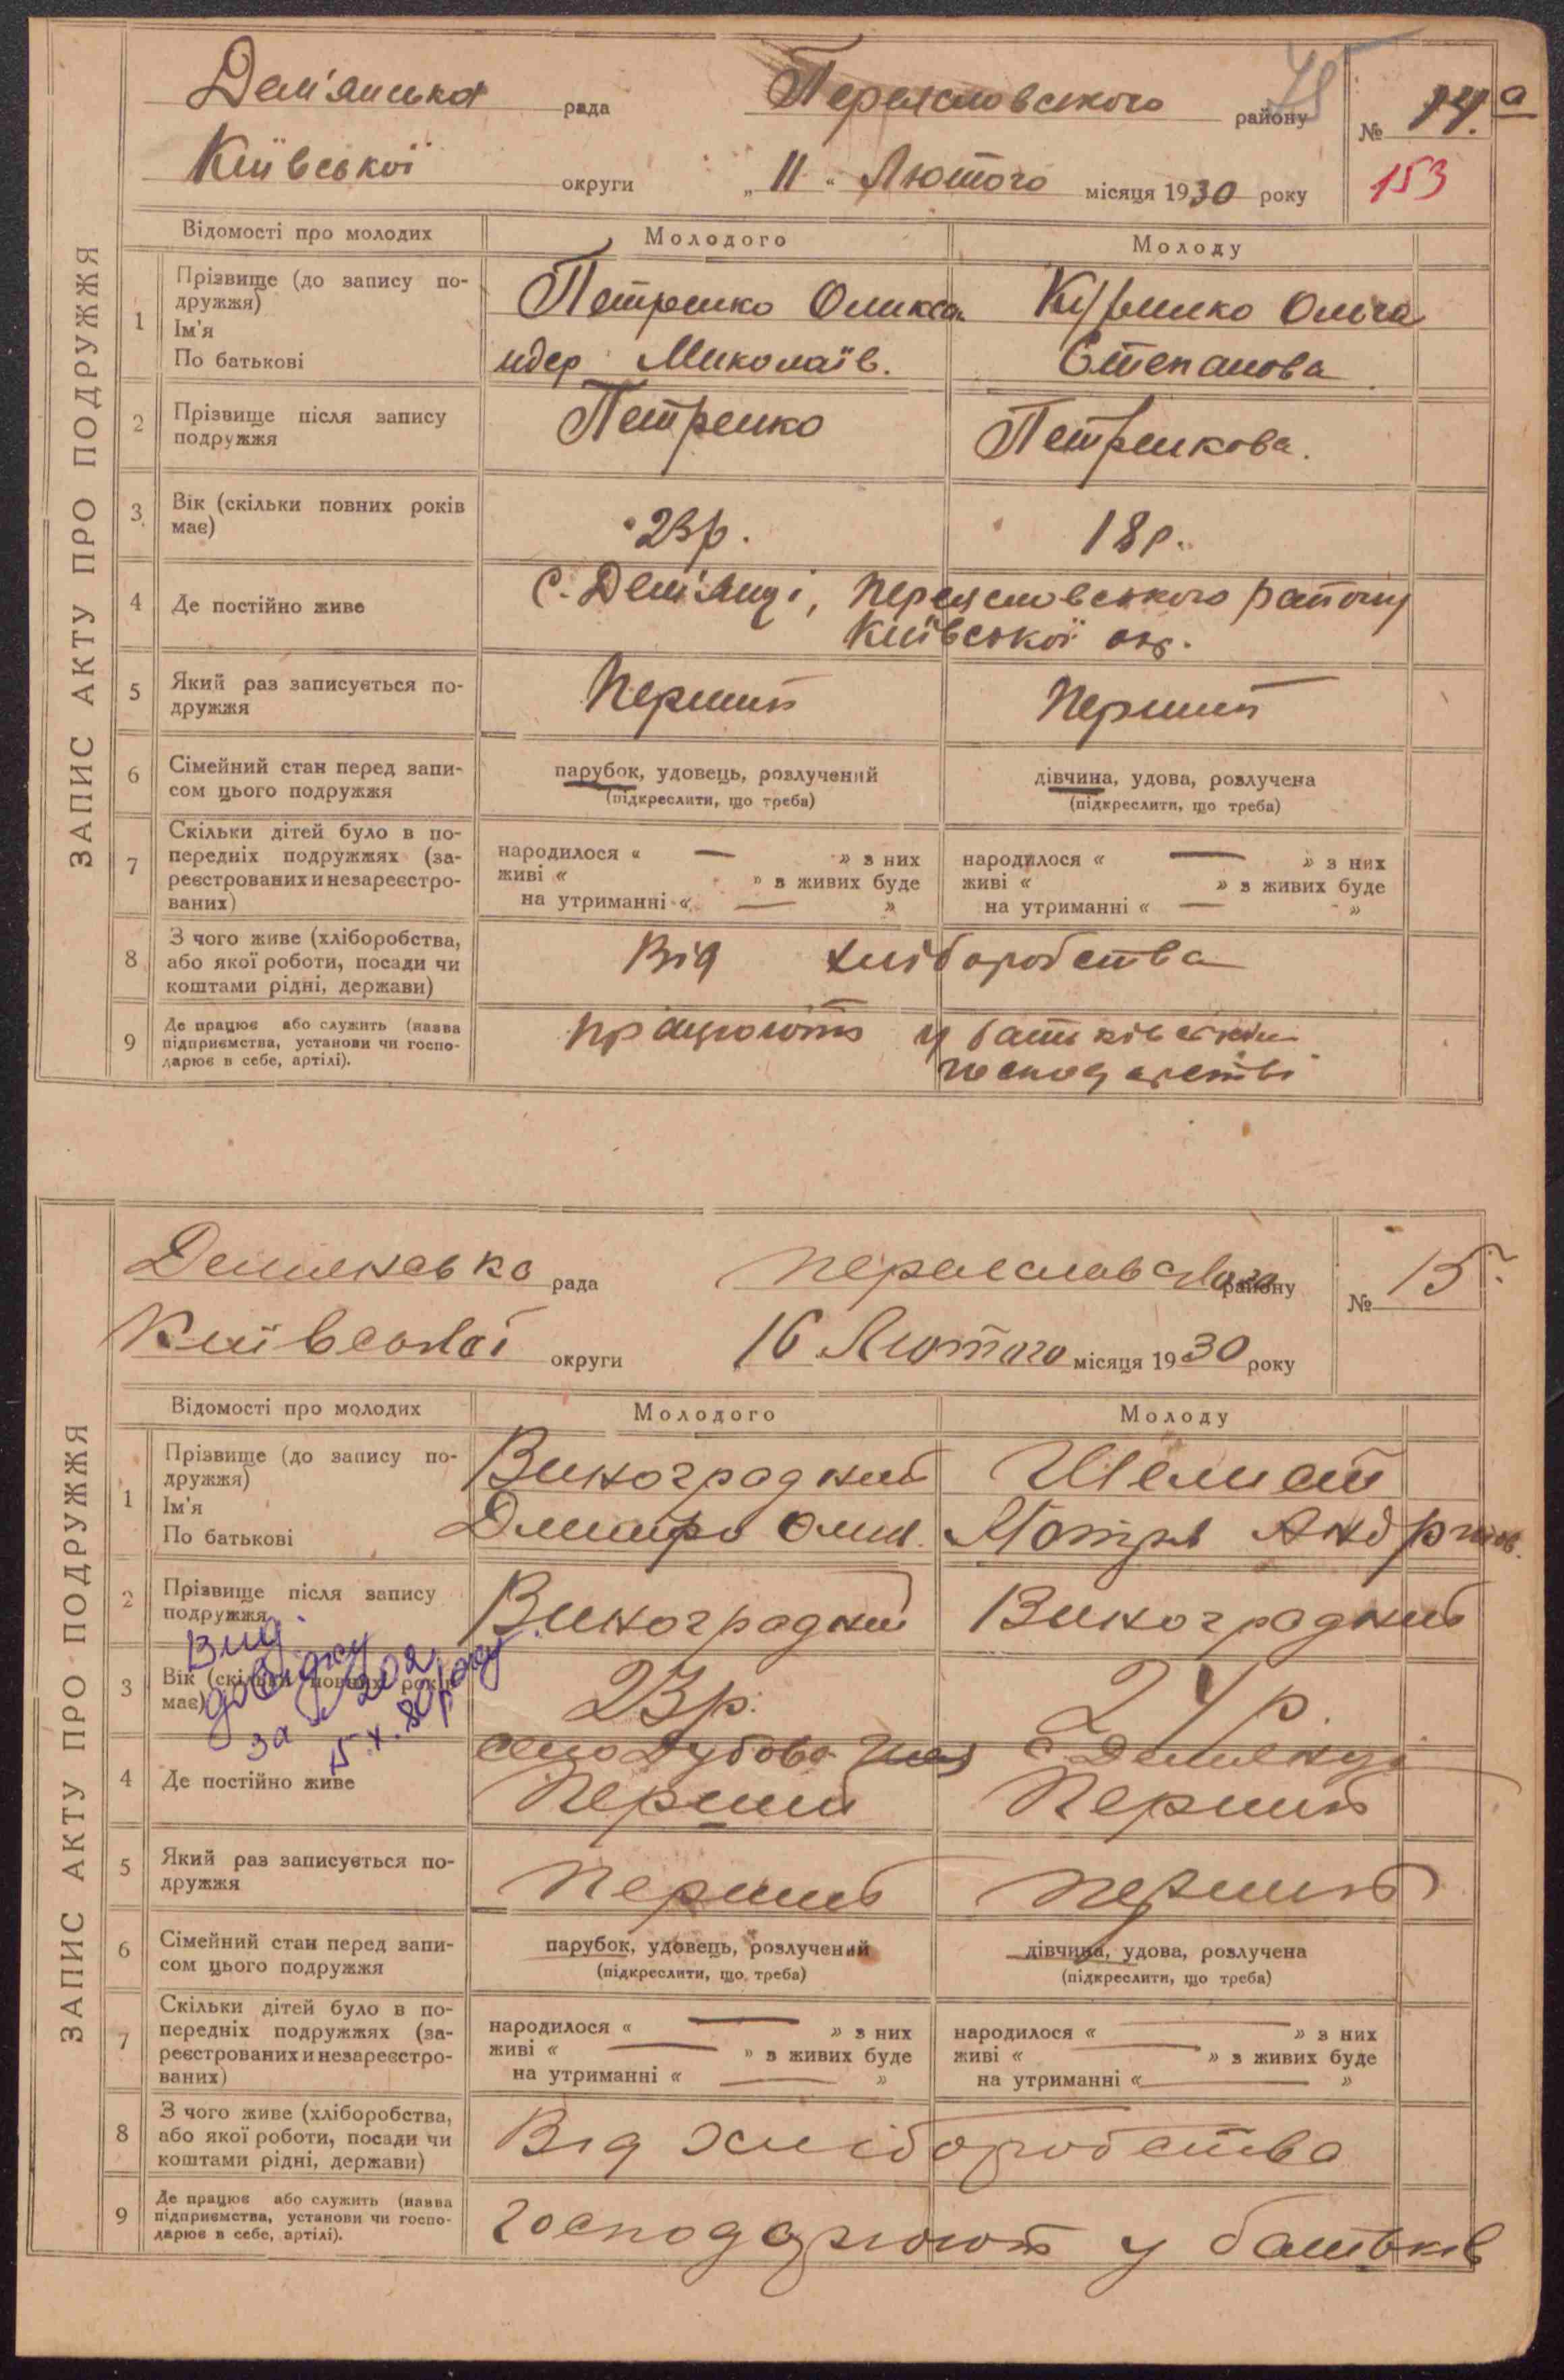 ЗАПИС АКТУ ПРО ПОДРУЖЖЯ
Дем'янська рада Переяславського району № 14.а
75
Київської округи „11“ Лютого місяця 1930 року 153
Відомості про молодих Молодого Молоду
1 Прізвище (до запису подружжя) Ім'я По батькові
Петренко Олекса Кузьменко Ольга
ндер Миколаїв. Степанова
2 Прізвище після запису подружжя Петренко Петренкова.
3 Вік (скільки повних років має) 23 р. 18 р.
4 Де постійно живе с. Дем'янці, Переяславського району
Київської окр.
5 Який раз записується подружжя Перший Перший
6 Сімейний стан перед записом цього подружжя парубок, удовець, розлучений дівчина, удова, розлучена
(підкреслити, що треба) (підкреслити, що треба)
7 Скільки дітей було в попередніх подружжях (зареєстрованих и незареєстрованих)
народилося « — » з них народилося « — » з них
живі « » з живих буде живі « » з живих буде
на утриманні « — » на утриманні « — »
8 З чого живе (хліборобства, або якої роботи, посади чи коштами рідні, держави) Від хліборобства
9 Де працює або служить (назва підприємства, установи чи господарює в себе, артілі). працюють у батьківськім
господарстві
ЗАПИС АКТУ ПРО ПОДРУЖЖЯ
Демянська рада Переяславського району № 15.
Київської округи 16 Лютого місяця 1930 року
Відомості про молодих Молодого Молоду
1 Прізвище (до запису подружжя) Ім'я По батькові
Виноградний Шемет
Дмитро Мотря
2 Прізвище після запису подружжя Виноградний Виноградний
Вид. довідку за
3 Вік (скільки повних років має) 23 р. 24 р.
4 Де постійно живе село Дубова с Демянці
Перший Перший
5 Який раз записується подружжя Перший Перший
6 Сімейний стан перед записом цього подружжя парубок, удовець, розлучений дівчина, удова, розлучена
(підкреслити, що треба) (підкреслити, що треба)
7 Скільки дітей було в попередніх подружжях (зареєстрованих и незареєстрованих)
народилося « — » з них народилося « — » з них
живі « — » з живих буде живі « — » з живих буде
на утриманні « — » на утриманні « — »
8 З чого живе (хліборобства, або якої роботи, посади чи коштами рідні, держави) Від хліборобства
9 Де працює або служить (назва підприємства, установи чи господарює в себе, артілі). господарюют у батьків